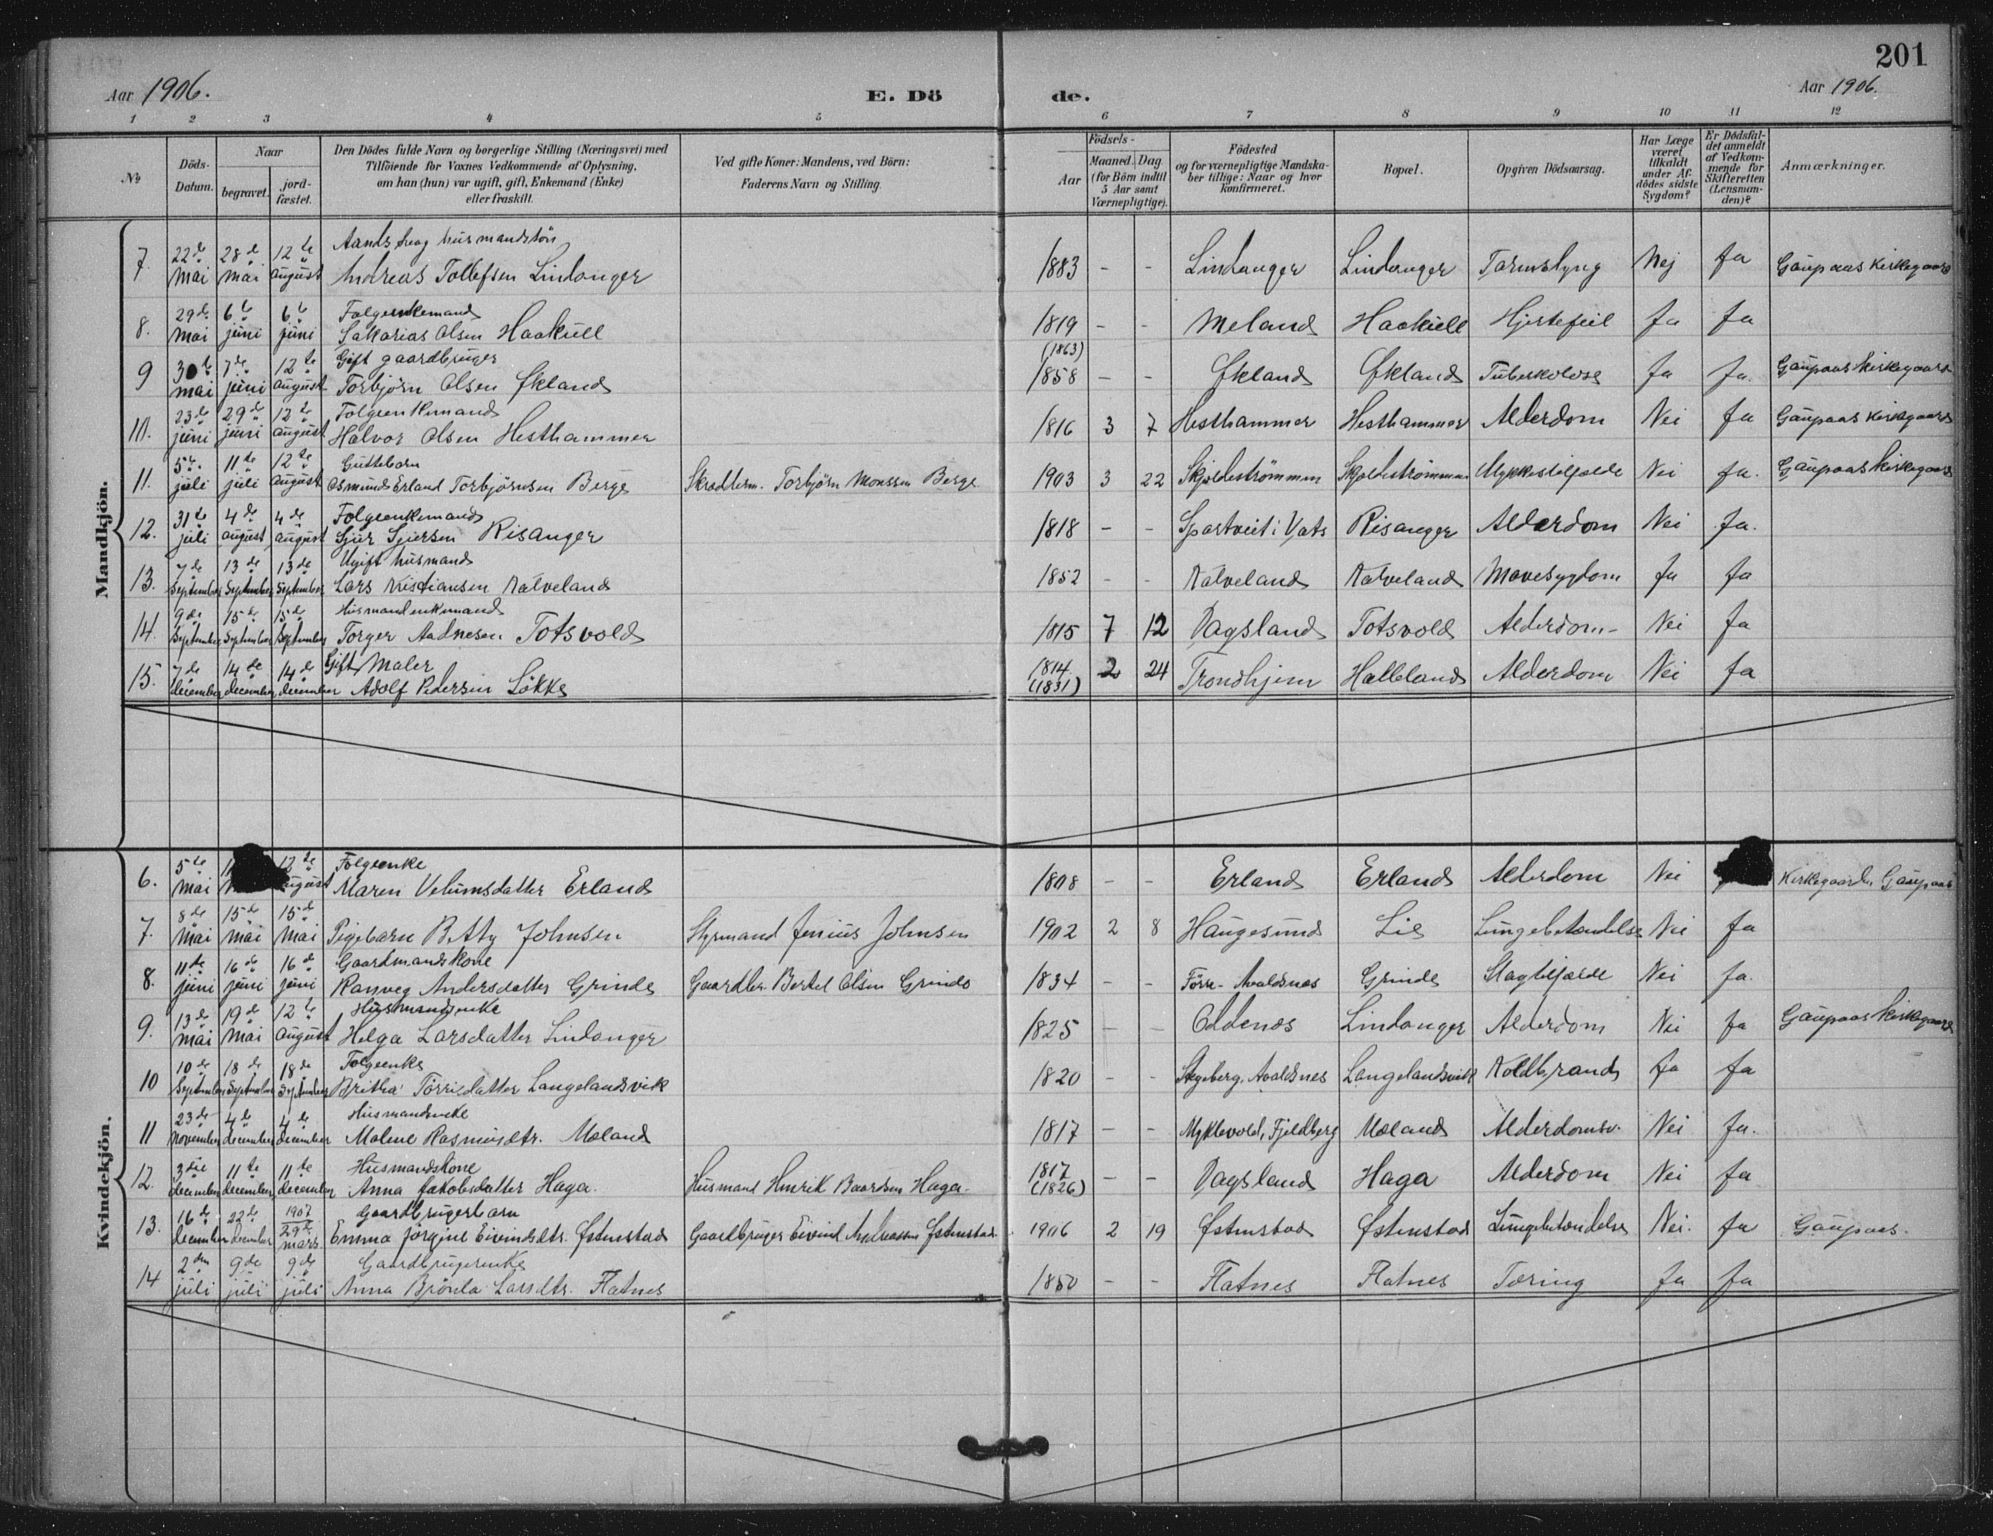 201
Aar 1906.
E. Dö
de.
Aar 1906.
1 2 3 4 5 6 7 8 9 10 11 12
No
Döds-Datum.
Naar
begravet.
jord-fæstet.
Den Dödes fulde Navn og borgerlige Stilling (Næringsvei) med
Tilföiende for Voxnes Vedkommende af Oplysning,
om han (hun) var ugift, gift, Enkemand (Enke)
eller fraskilt.
Ved gifte Koner: Mandens, ved Börn:
Faderens Navn og Stilling.
Födsels-
Aar
Maaned. Dag
(for Börn indtil
5 Aar samt
Værnepligtige).
Födested
og for værnepligtige Mandska-
ber tillige: Naar og hvor
konfirmeret.
Bopæl.
Opgiven Dödsaarsag.
Har Læge
været
tilkaldt
under Af-
dödes sidste
Sygdom?
Er Dödsfal-
det anmeldt
af Vedkom-
mende for
Skifteretten
(Lensman-
den)?
Anmærkninger.
Mandkjön.
7. 22de mai 28de mai 12te august Aandssvag husmandssön
Andreas Tollefsen Lindanger 1883 - - Lindanger Lindanger Tarmslyng Nej Ja Gaupaas Kirkegaard
8. 29de mai 6te juni 6te juni Folgeenkemand
Sakarias Olsen Haakull 1819 - - Meland Haakull Hjertefeil Ja Ja
9 30te mai 7de juni 12te august Gift gaardbruger
Torbjørn Olsen Økland (1863) 1858 - - Økland Økland Tuberkolose Ja Ja. Gaupaas Kirkegaard
10. 23de juni 29de juni 12te august Folgeenkemand
Halvor Olsen Hesthammer 1816 3 7 Hesthammer Hesthammer Alderdom Nei Ja Gaupaas Kirkegaard
11. 5te juli 11te juli 12te august Guttebarn
Osmund Erland Torbjørnsen Berge Skrædderm. Torbjörn Monssen Berge 1903 3 22 Skjoldeströmmen Skjoldeströmmen Nei Ja. Gaupaas Kirkegaard
12. 31te juli 4de august 4de august Folgeenkemand
Sjur Sjursen Risanger 1818 - - Spartveit i Vats Risanger Alderdom Nei Ja.
13. 7de September 13de September 13de September Ugift husmand
Lars Kristiansen Kalveland 1852 - - Kalveland Kalveland Mavesygdom Ja Ja
14. 9de September 15de September 15de September Husmandenkemand
Torger Aadnesen Totsvold 1815 7 12 Dagsland Totsvold Alderdom- Nei Ja
15. 7de december 14de december 14de december Gift Maler
Adolf Pedersen Lökke 1814 (1831) 2 24 Trondhjem Halleland Alderdom Nei Ja
Kvindekjön.
6. 5te mai 12te august Folgeenke
Maren Velumsdatter Erland 1808 - - Erland Erland Alderdom Nei Kirkegaard, Gaupaas
7. 8de mai 15de mai 15de mai Pigebarn Betty Johnsen Styrmand Junius Johnsen 1902 2 8 Haugesund Lie Lungebetændelse Nei Ja
8. 11te juni 16de juni 16de juni Gaardmandskone
Ranveg Andersdatter Grinde Gaardbr. Bertel Olsen Grinde 1834 - - Förre- Avaldsnes Grinde Slagtilfælde Nei Ja.
9. 13de mai 19de mai 12te august Husmandsenke
Helga Larsdatter Lindanger 1825 - - Oldenos Lindanger Alderdom Nei Ja Gaupaas Kirkegaard
10 10de September 18de September 18de September Folgeenke
Britha Törrisdatter Langelandsvik 1820 - - Stegeberg, Avaldsnes Langelandsvik Koldbrand Ja Ja
11 23de november 4de december 4de december Husmandsenke
Malene Rasmusdtr. Mæland 1817 - - Myklevold, Fjeldberg Mæland Alderdomsv. Nei Ja.
12. 3die december 11te december 11te december Husmandskone
Anna Jakobsdatter Haga. Husmand Henrik Baardsen Haga. 1817 (1826) - - Dagsland Haga Alderdom Nei Ja
13. 16de december 22de december 1907 29de mars Gaardbrugerbarn
Emma Jörgine Eivindsdtr. Østenstad Gaardbruger Eivind Andreassen Østenstad 1906 2 19 Østenstad Østenstad Lungebetændelse Nei. Ja Gaupaas.
14 2den juli 9de juli 9de juli Gaardbrugerenke
Anna Björnla Larsdtr. Flatnes 1850 - - Flatnes Flatnes Tæring Ja Ja